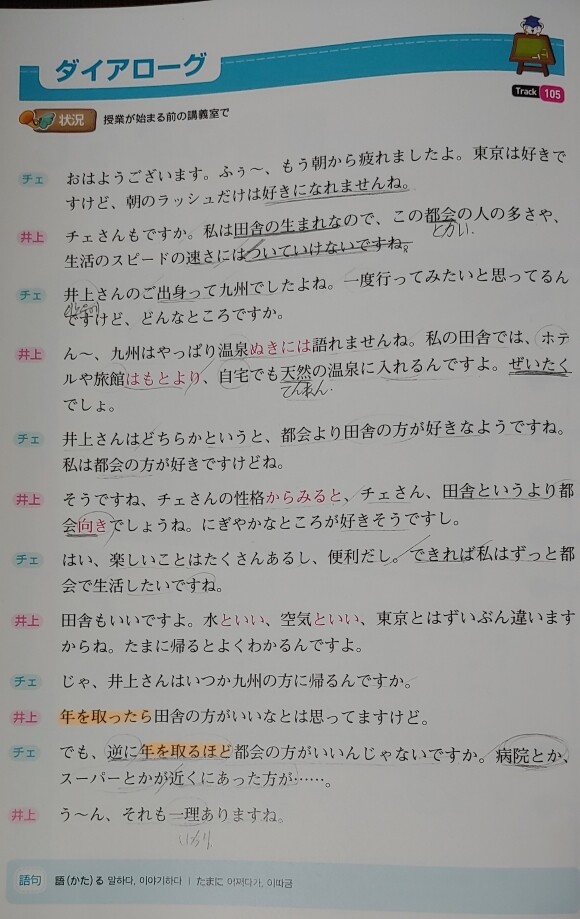 ダイアローグ
Track 105
状況 授業が始まる前の講義室で
チェ おはようございます。ふぅ〜、もう朝から疲れましたよ。東京は好きで
すけど、朝のラッシュだけは好きになれませんね。
井上 チェさんもですか。私は田舎の生まれなので、この都会の人の多さや、
とかい.
生活のスピードの速さにはついていけないですね。
チェ 井上さんのご出身って九州でしたよね。一度行ってみたいと思ってるん
ですけど、どんなところですか。
井上 ん〜、九州はやっぱり温泉ぬきには語れませんね。私の田舎では、ホテ
ルや旅館はもとより、自宅でも天然の温泉に入れるんですよ。ぜいたく
てんねん.
でしょ。
チェ 井上さんはどちらかというと、都会より田舎の方が好きなようですね。
私は都会の方が好きですけどね。
井上 そうですね、チェさんの性格からみると、チェさん、田舎というより都
会向きでしょうね。にぎやかなところが好きそうですし。
チェ はい、楽しいことはたくさんあるし、便利だし。できれば私はずっと都
会で生活したいですね。
井上 田舎もいいですよ。水といい、空気といい、東京とはずいぶん違います
からね。たまに帰るとよくわかるんですよ。
チェ じゃ、井上さんはいつか九州の方に帰るんですか。
井上 年を取ったら田舎の方がいいなとは思ってますけど。
チェ でも、逆に年を取るほど都会の方がいいんじゃないですか。病院とか、
スーパーとかが近くにあった方が……。
井上 う〜ん、それも一理ありますね。
いちり
語句 語(かた)る 말하다, 이야기하다 | たまに 어쩌다가, 이따금